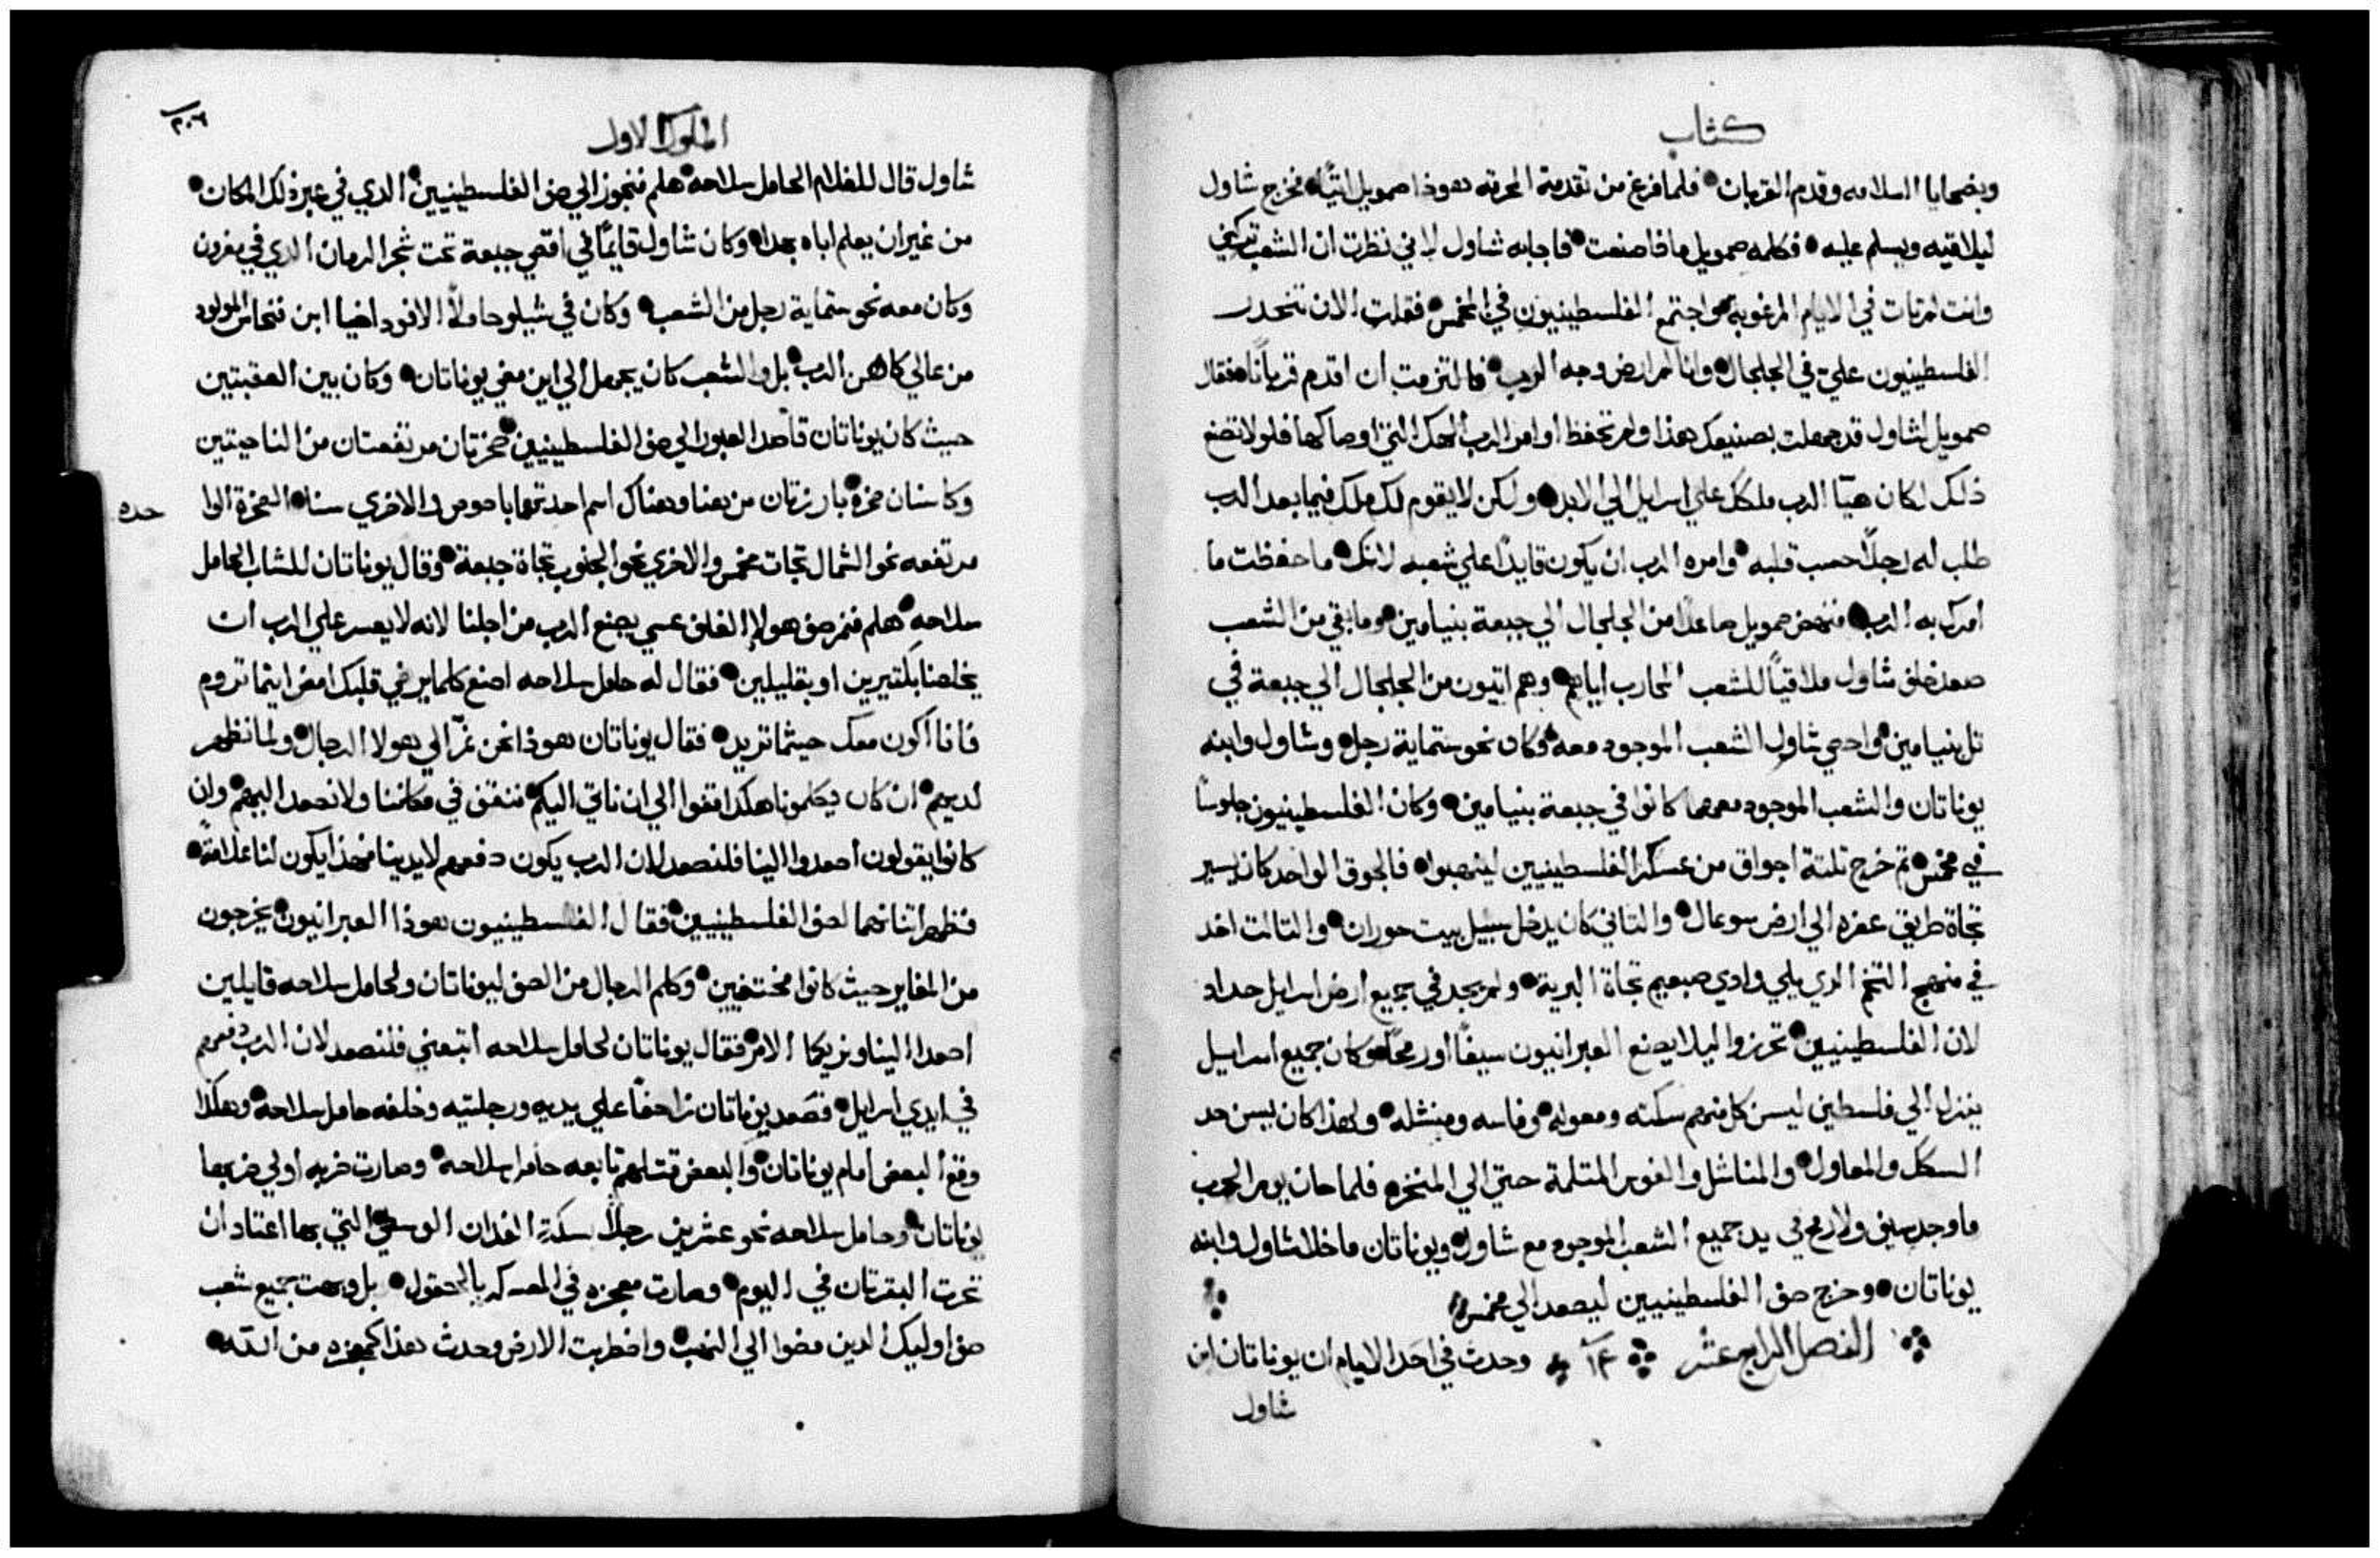 كتاب
وبضحايا السلامه وقدم القربان فلما فرغ من تقدمة المحرقه هوذا صمويل اتيًا فخرج شاول
ليلاقيه ويسلم عليه فكلمه صمويل مافا صنعت فاجابه شاول لاني نظرت ان الشعب تركني
وانت لم تات في الايام المرغوبه واجتمع الفلسطينيون في المخمس فقلت الان تنحدر
الفلسطينيون علي في الجلجال وانا لم ارض وجه الرب فالتزمت ان اقدم قربانًا فقال
صمويل لشاول قد جهلت بصنيعك هذا ولم تحفظ اوامر الرب الهك التي اوصاكها فلو لا تضع
ذلك لكان هيّا الرب ملكك علي اسرايل الي الابد ولكن لا يقوم لك ملك فيما بعد الرب
طلب له رجلًا حسب قلبه وامره الرب ان يكون قايدًا علي شعبه لانك ما حفظت ما
امرك به الرب فنهض صمويل صاعدًا من الجلجال الي جبعة بنيامين وما بقي من الشعب
صعد خلف شاول ملاقيًا للشعب المحارب اياهم وهم اتيون من الجلجال الي جبعة في
تل بنيامين واحصي شاول الشعب الموجود معه وكان نحو ستماية رجل وشاول وابنه
يوناتان والشعب الموجود معهما كانوا في جبعة بنيامين وكان الفلسطينيون جلوسًا
في مخمس ثم خرج تلتة اجواق من عسكر الفلسطينيين لينهبوا فالجوق الواحد كان يسير
تجاة طريق عفره الي ارض سوعال والتاني كان يدخل سبيل بيت حوران والتالت اخد
في منهج التخم الدي يلي وادي صبعيم تجاة البرية ولم يجد في جميع ارض اسرايل حداد
لان الفلسطينيين تحرزوا ليلا يصنع العبرانيون سيفًا او رمحًا وكان جميع اسرايل
ينزل الي فلسطين ليسن كل منهم سكته ومعوله وفاسه ومنشله ولهذا كان يسن حد
السكك والمعاول والمناشل والفوس المتلمة حتي الي المنخزه فلما حان يوم الحرب
ما وجد سيف ولا رمح في يد جميع الشعب الموجود مع شاول ويوناتان ما خلا شاول وابنه
يوناتان وخرج صف الفلسطينيين ليصعد الي مخمس
الفصل الرابع عشر ١٤ وحدث في احد الايام ان يوناتان ابن
شاول
٢٠٦
الملوك الاول
شاول قال للغلام الحامل سلاحه هلم فنجوز الي صف الفلسطينيين الدي في عبر ذلك المكان
من غير ان يعلم اباه بهدا وكان شاول قايمًا في اقصي جبعة تحت شجر الرمان الدي في مغرون
وكان معه نحو ستماية رجل من الشعب وكان في شيلو حاملًا الافود اخيا ابن فنحاس المولود
من عالي كاهن الرب بل والشعب كان يجهل الي اين مضي يوناتان وكان بين العقبتين
حيث كان يوناتان قاصد العبور الي صف الفلسطينيين صخرتان مرتفعتان من الناحيتين
وكاسنان صخرة بارزتان من هنا وهناك اسم احدتهما باصوص والاخري سنا الصخرة الوا
حده
مرتفعه نحو الشمال تجات مخمس والاخري نحو الجنوب تجاة جبعة وقال يوناتان للشاب الحامل
سلاحه هلم فنمر صف هولا الغلف عسي يصنع الرب من اجلنا لانه لا يعسر علي الرب ان
يخلصنا بكتيرين او بقليلين فقال له حامل سلاحه اصنع كلما يرضي قلبك امض ايثما تروم
فانا اكون معك حيثما تريد فقال يوناتان هوذا نحن نمرّ الي هولا الرجال ولما نظهر
لديهم ان كان يكلمونا هكدا قفوا الي ان ناتي اليكم فنقف في مكاننا ولا نصعد اليهم وان
كانوا يقولون اصعدوا الينا فلنصعد لان الرب يكون دفعهم لايدينا فهذا يكون لنا علامة
فظهر اتناهما لصف الفلسطينيين فقال الفلسطينيون هوذا العبرانيون يخرجون
من المغاير حيث كانوا مختفيين وكلم الرجال من الصف ليوناتان ولحامل سلاحه قايلين
اصعدا الينا ونريكما الامر فقال يوناتان لحامل سلاحه اتبعني فلنصعد لان الرب دفعهم
في ايدي اسرايل فصعد يوناتان زاحفًا علي يديه ورجليه وخلفه حامل سلاحه وهكدا
وقع البعض امام يوناتان والبعض قتلهم تابعه حامل سلاحه وصارت ضربه اولي ضربها
يوناتان وحامل سلاحه نحو عشرين رجلًا بسكة الفدان الوسطي التي بها اعتاد ان
تحرت البقرتان في اليوم وصارت معجزه في المعسكر بالحقول بل وبهت جميع شعب
صف اوليك الدين مضوا الي النهب واضطربت الارض وحدث هذا كمعجزه من الله